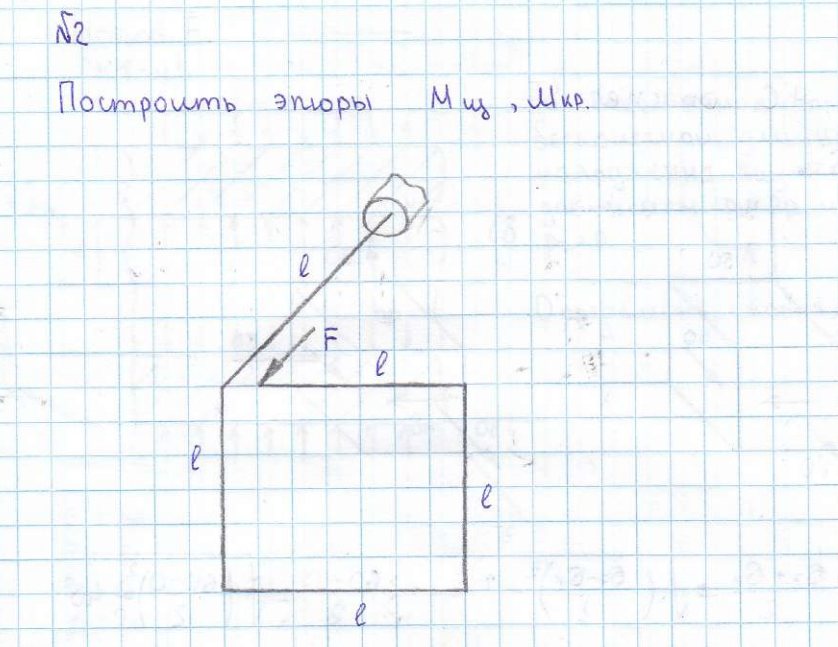 №2
Построить эпюры Mщ, Mкр.
l
F
l
l
l
l